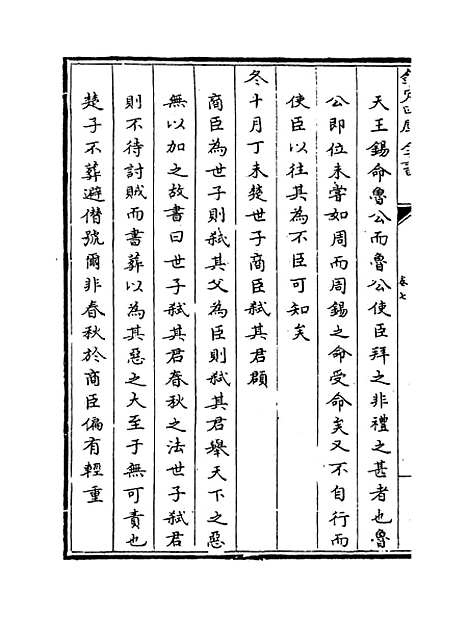 欽定四庫全書
卷七
天王錫命魯公而魯公使臣拜之非禮之甚者也魯
公即位未嘗如周而周錫之命受命矣又不自行而
使臣以往其為不臣可知矣
冬十月丁未楚世子商臣弑其君頵
商臣為世子則弑其父為臣則弑其君舉天下之惡
無以加之故書曰世子弑其君春秋之法世子弑君
則不待討賊而書葬以為其惡之大至于無可責也
楚子不葬避僣號爾非春秋於商臣偏有輕重